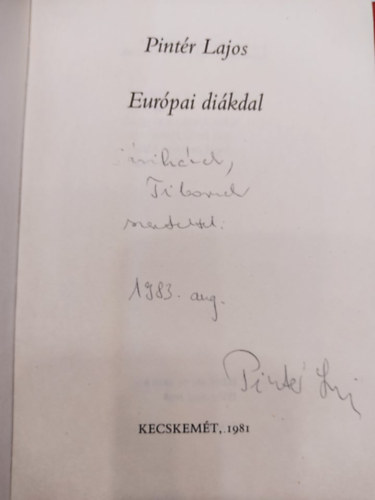 Pintér Lajos
Európai diákdal
Tibornak
szeretettel:
1983. aug.
Pintér Lajos
KECSKEMÉT, 1981